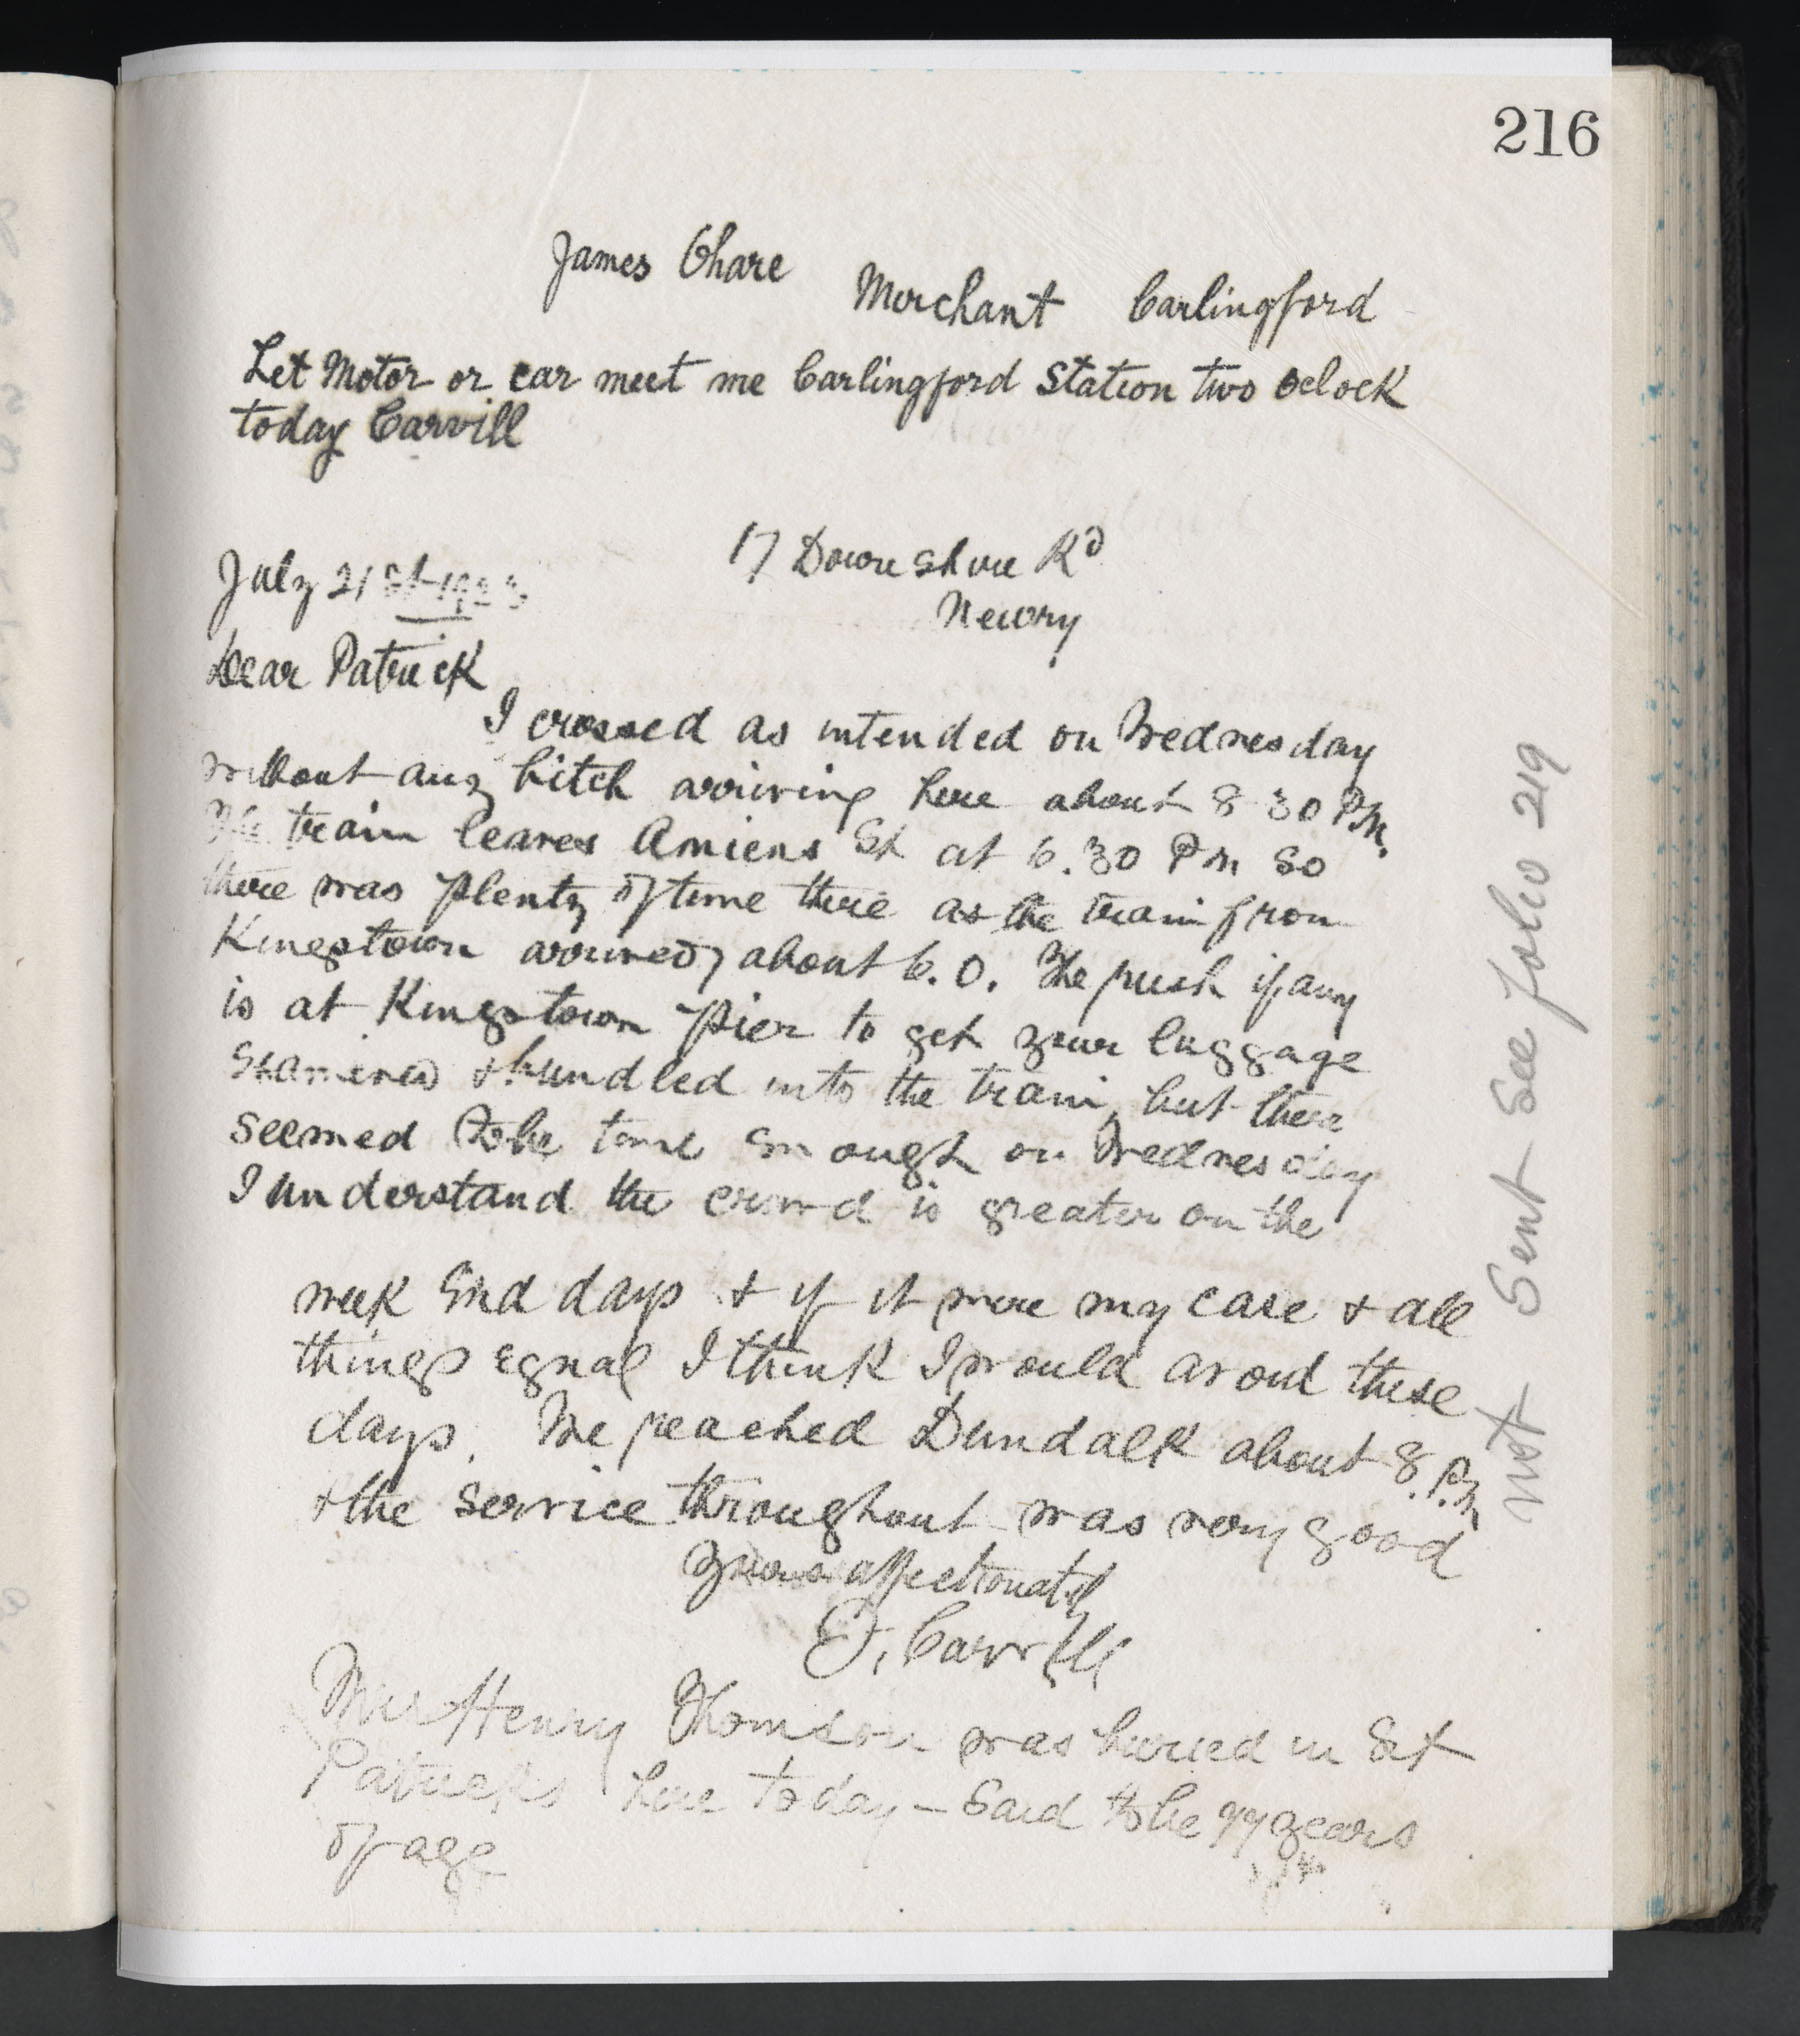 216
James Ohare Merchant Carlingford
Let Motor or car meet me Carlingford Station two oclock
today Carvill
17 Downshire Rd
Newry
July 21st 1923
Dear Patrick
I crossed as intended on Wednesday
without any hitch arriving here about 8 30 PM.
The train leaves Amiens St at 6.30 PM so
there was plenty of time there as the train from
Kingstown arrived about 6.0. The push if any
is at Kingstown Pier to get your luggage
Examined & bundled into the train, but there
seemed to be time enough on Wednesday
I understand the crowd is greater on the
week End days & if it were my case & all
things Equal I think I would avoid these
days. We reached Dundalk about 8.P.M
& the service throughout was very good
Yours affectionately
Carvill
Henry Thomson was buried in St
Patricks here today – Said to be 77 years
of age
not Sent See folio 219